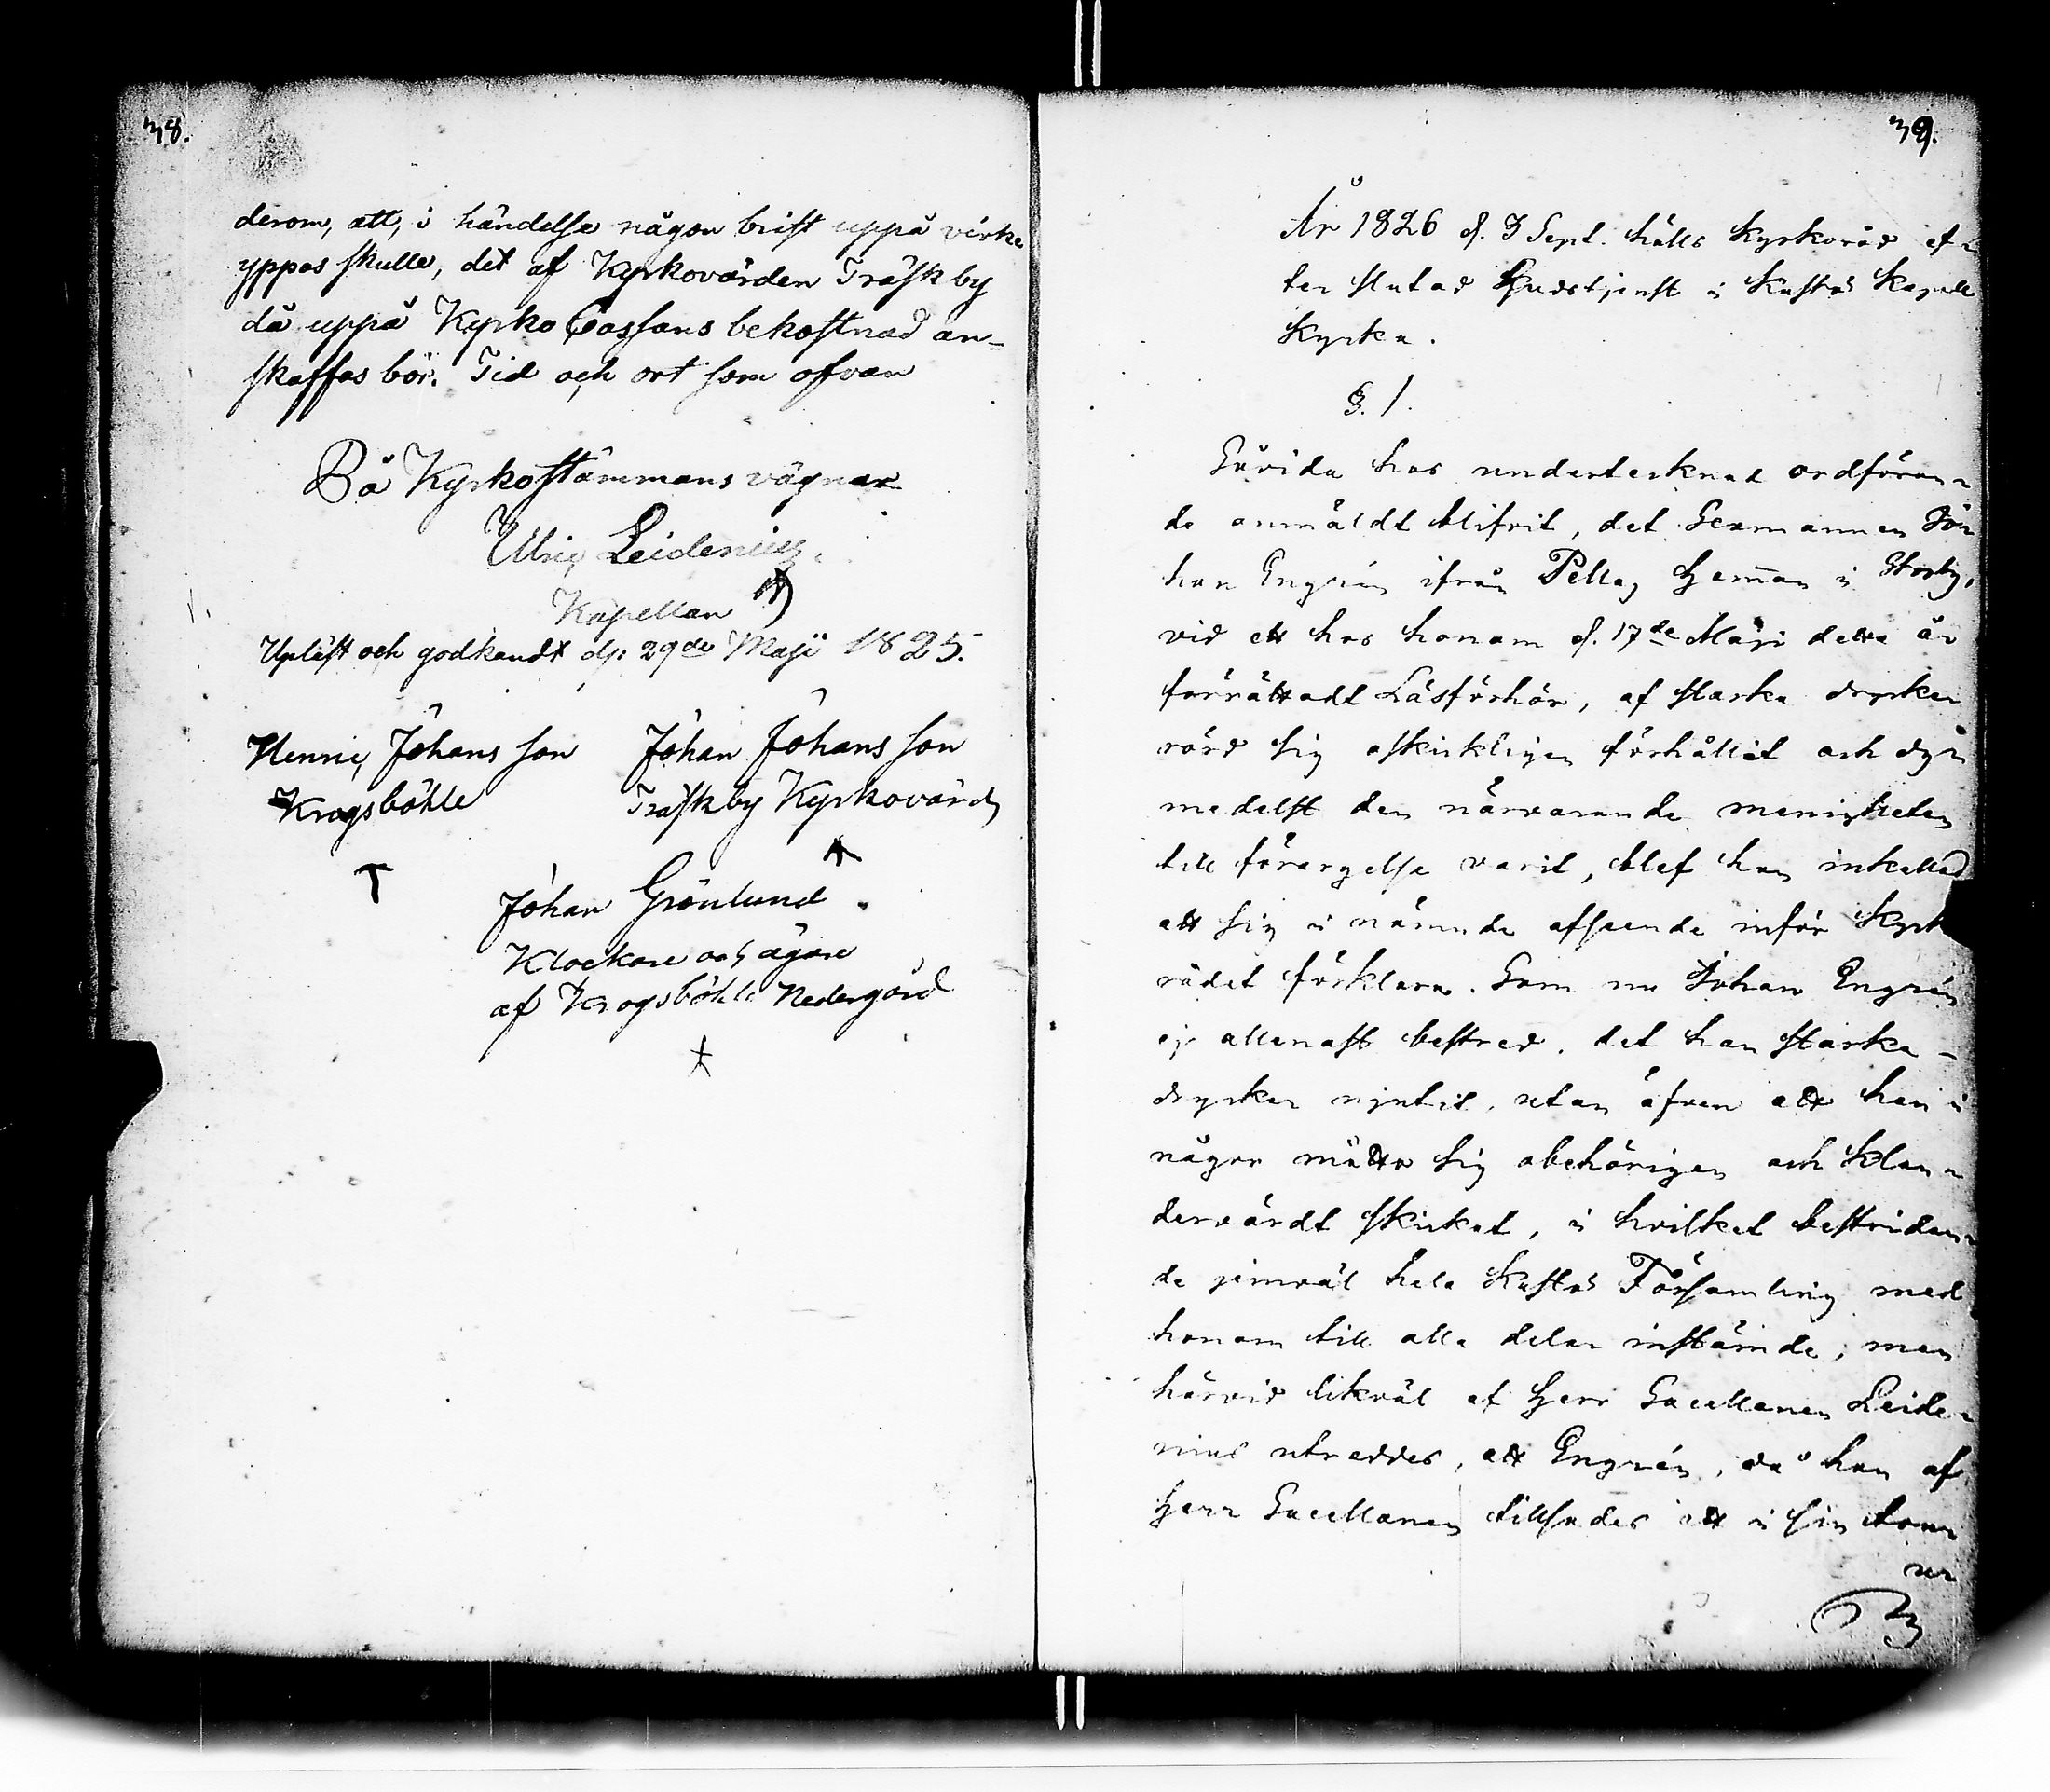 38.
derom, att, i händelse någon brist uppå virke
yppas skulle, det af Kyrkovärden Träskby
då uppå Kyrko Cassans bekostnad an=
skaffas bör. Tid och ort som ofvan
På Kyrkostämmans vägnar
Ulric Leidenius.
Kapellan
Upläst och godkändt d: 29de Maji 1825.
Henric Johans son Johan Johans son
Krogsböhle Träskby Kyrkovärd
Johan Grönlund.
Klockare och ägare
af Krogsböhle Nedergård
39.
År 1826 d. 3 Sept. hölls Kyrkoråd ef=
ter slutad Gudstjenst i Kustö Kapell
Kyrka.
§. 1.
Såvida hos undertecknad ordföran=
de anmäldt blifvit, det Sexmannen Jo=
han Engrén ifrån Pellas Hemman i Storby,
vid ett hos honom d. 17de Maji detta år
förrättadt Läsförhör, af starka drycker
rörd sig oskickligen förhållit och dy=
medelst den närvarande menigheten
till förargelse varit, blef han inkallad
att sig i nämnde afseende inför Kyrk
rådet förklara. Som nu Johan Engrén
ej allenast bestred, det han starka
drycker njutit, utan äfven att han i
någon måtto sig obehörigen och klan=
dervärdt skickat, i hvilket bestridan=
de jemväl hela Kustö Församling med
honom till alla delar instämde; men
härvid likväl af Herr Sacellanen Leide=
nius utreddes, att Engrén, då han af
Herr Sacellanen tillsades att i sin tour